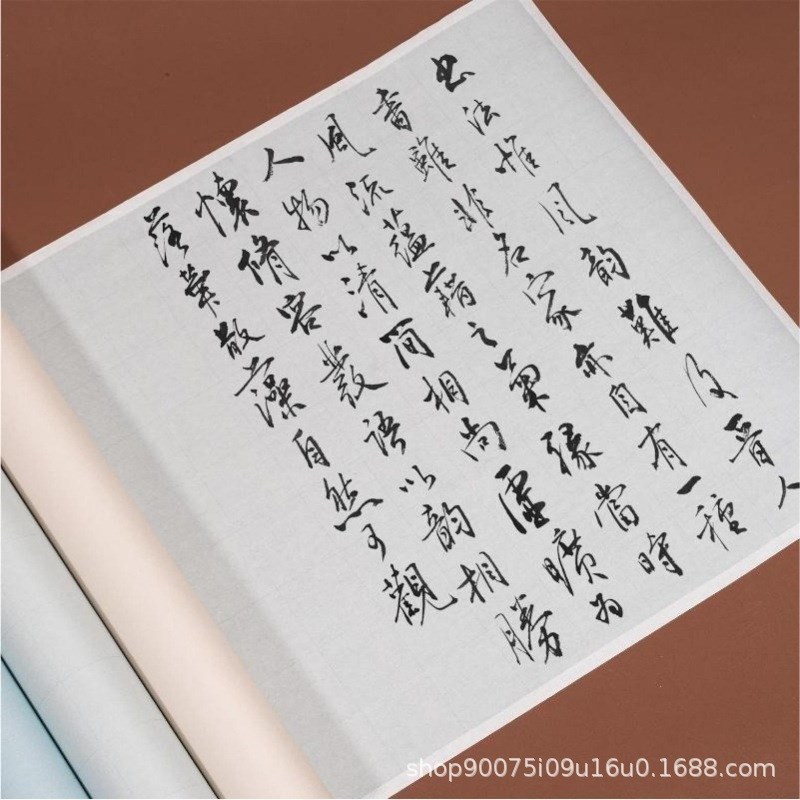 书法惟風韵難及晉人
書雖非名家亦自有一種
風流蘊藉之氣緣當時
人物以清簡相尚虛曠為
懷脩容發語以韵相勝
落華散藻自然可觀
shop90075i09u16u0.1688.com